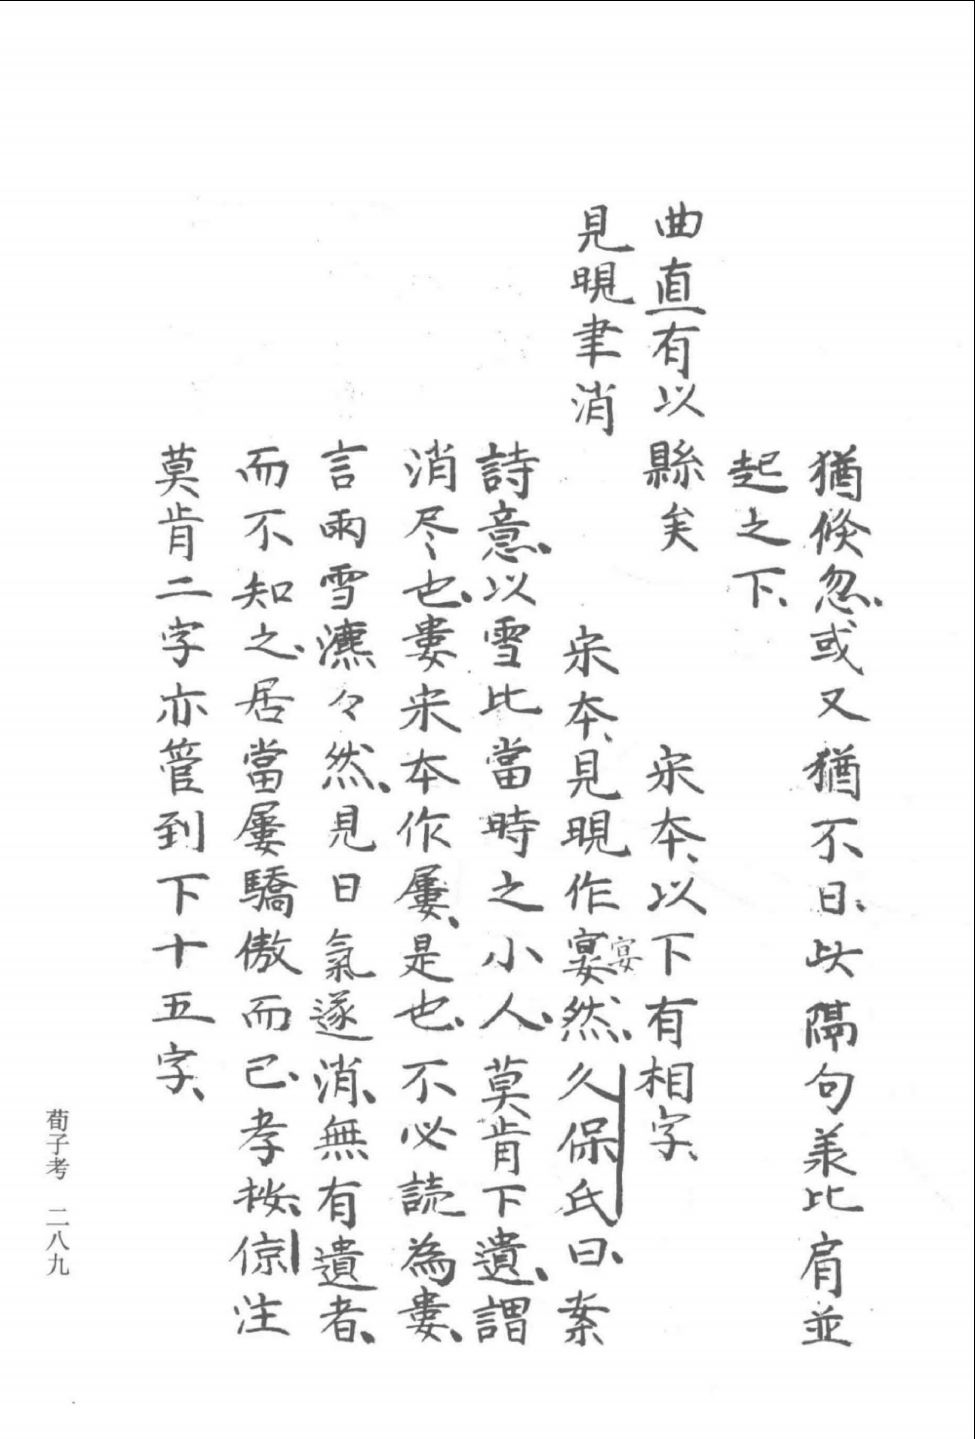 猶倏忽、或又猶不日、此隔句義比肩並
起之下、
曲直有以縣矣　宋本、以下有相字、
見晛聿消　宋本、見晛作宴然、久保氏曰、案
宴
詩意、以雪比當時之小人、莫肯下遺、謂
消尽也、婁宋本作屢、是也、不必読為婁、
言雨雪瀌々然、見日氣遂消、無有遺者、
而不知之、居當屢驕傲而已、孝桉、倞注
莫肯二字亦管到下十五字、
荀子考　二八九